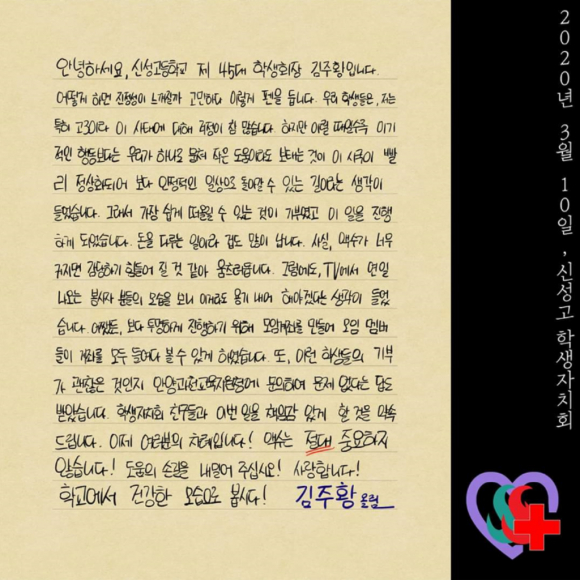 안녕하세요, 신성고등학교 제 45대 학생회장 김주황입니다.
어떻게 하면 진정성이 느껴질까 고민하다 이렇게 펜을 듭니다. 우리 학생들은, 저는
특히 고3이라 이 사태에 대해 걱정이 참 많습니다. 하지만 이럴 때일수록 이기
적인 행동보다는 우리가 하나로 뭉쳐 작은 도움이라도 보태는 것이 이 시국이 빨
리 정상화되어 보다 안정적인 일상으로 돌아갈 수 있는 길이라는 생각이
들었습니다. 그래서 가장 쉽게 떠올릴 수 있는 것이 기부였고 이 일을 진행
하게 되었습니다. 돈을 다루는 일이라 겁도 많이 납니다. 사실, 액수가 너무
커지면 감당하기 힘들어 질 것 같아 움츠러듭니다. 그럼에도, TV에서 연일
나오는 봉사자 분들의 모습을 보니 이거라도 용기 내어 해야겠다는 생각이 들었
습니다. 어쨌든, 보다 투명하게 진행하기 위해 모임계좌를 만들어 모임 멤버
들이 계좌를 모두 들여다 볼 수 있게 하였습니다. 또, 이런 학생들의 기부
가 괜찮은 것인지 안양과천교육지원청에 문의하여 문제 없다는 답도
받았습니다. 학생자치회 친구들과 이번 일을 책임감 있게 할 것을 약속
드립니다. 이제 여러분의 차례입니다! 액수는 절대 중요하지
않습니다! 도움의 손길을 내밀어 주십시오! 사랑합니다!
학교에서 건강한 모습으로 봅시다! 김주황 올림
2020년 3월 10일, 신성고 학생자치회